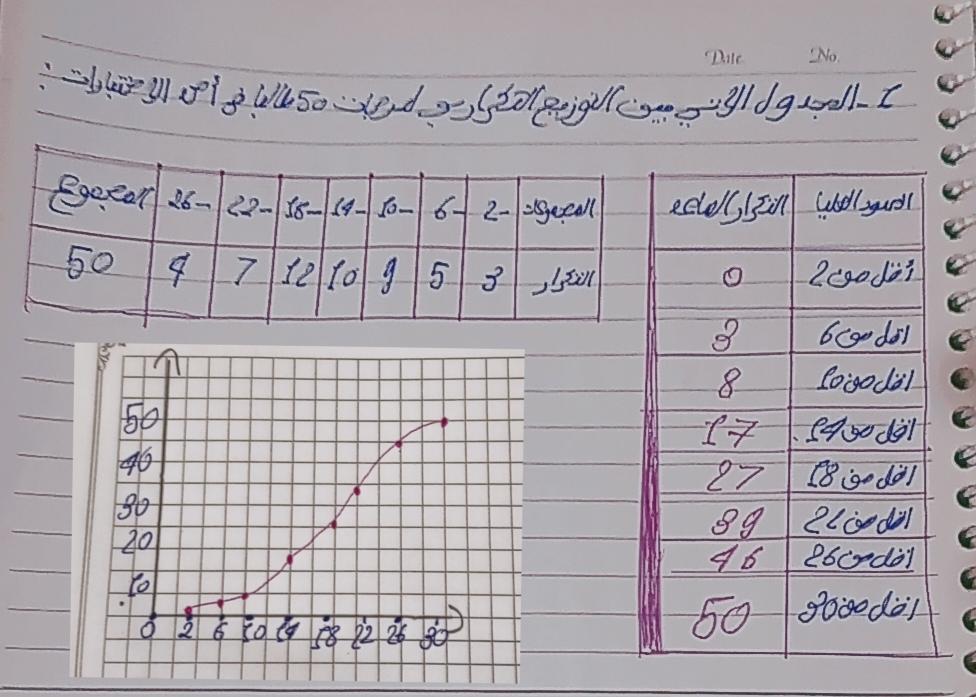 Date No.
1 - الجدول الآتي يبين التوزيع التكراري لدرجات 50 طالبا في أحد الاختبارات :
المجموعات 2- 6- 10- 14- 18- 22- 26- المجموع
التكرار 3 5 9 10 12 7 4 50
الحدود العليا التكرار الصاعد
أقل من 2 0
اقل من 6 3
اقل من 10 8
اقل من 14 17
اقل من 18 27
اقل من 22 39
اقل من 26 46
اقل من 30 50
50
40
30
20
10
0 2 6 10 14 18 22 26 30